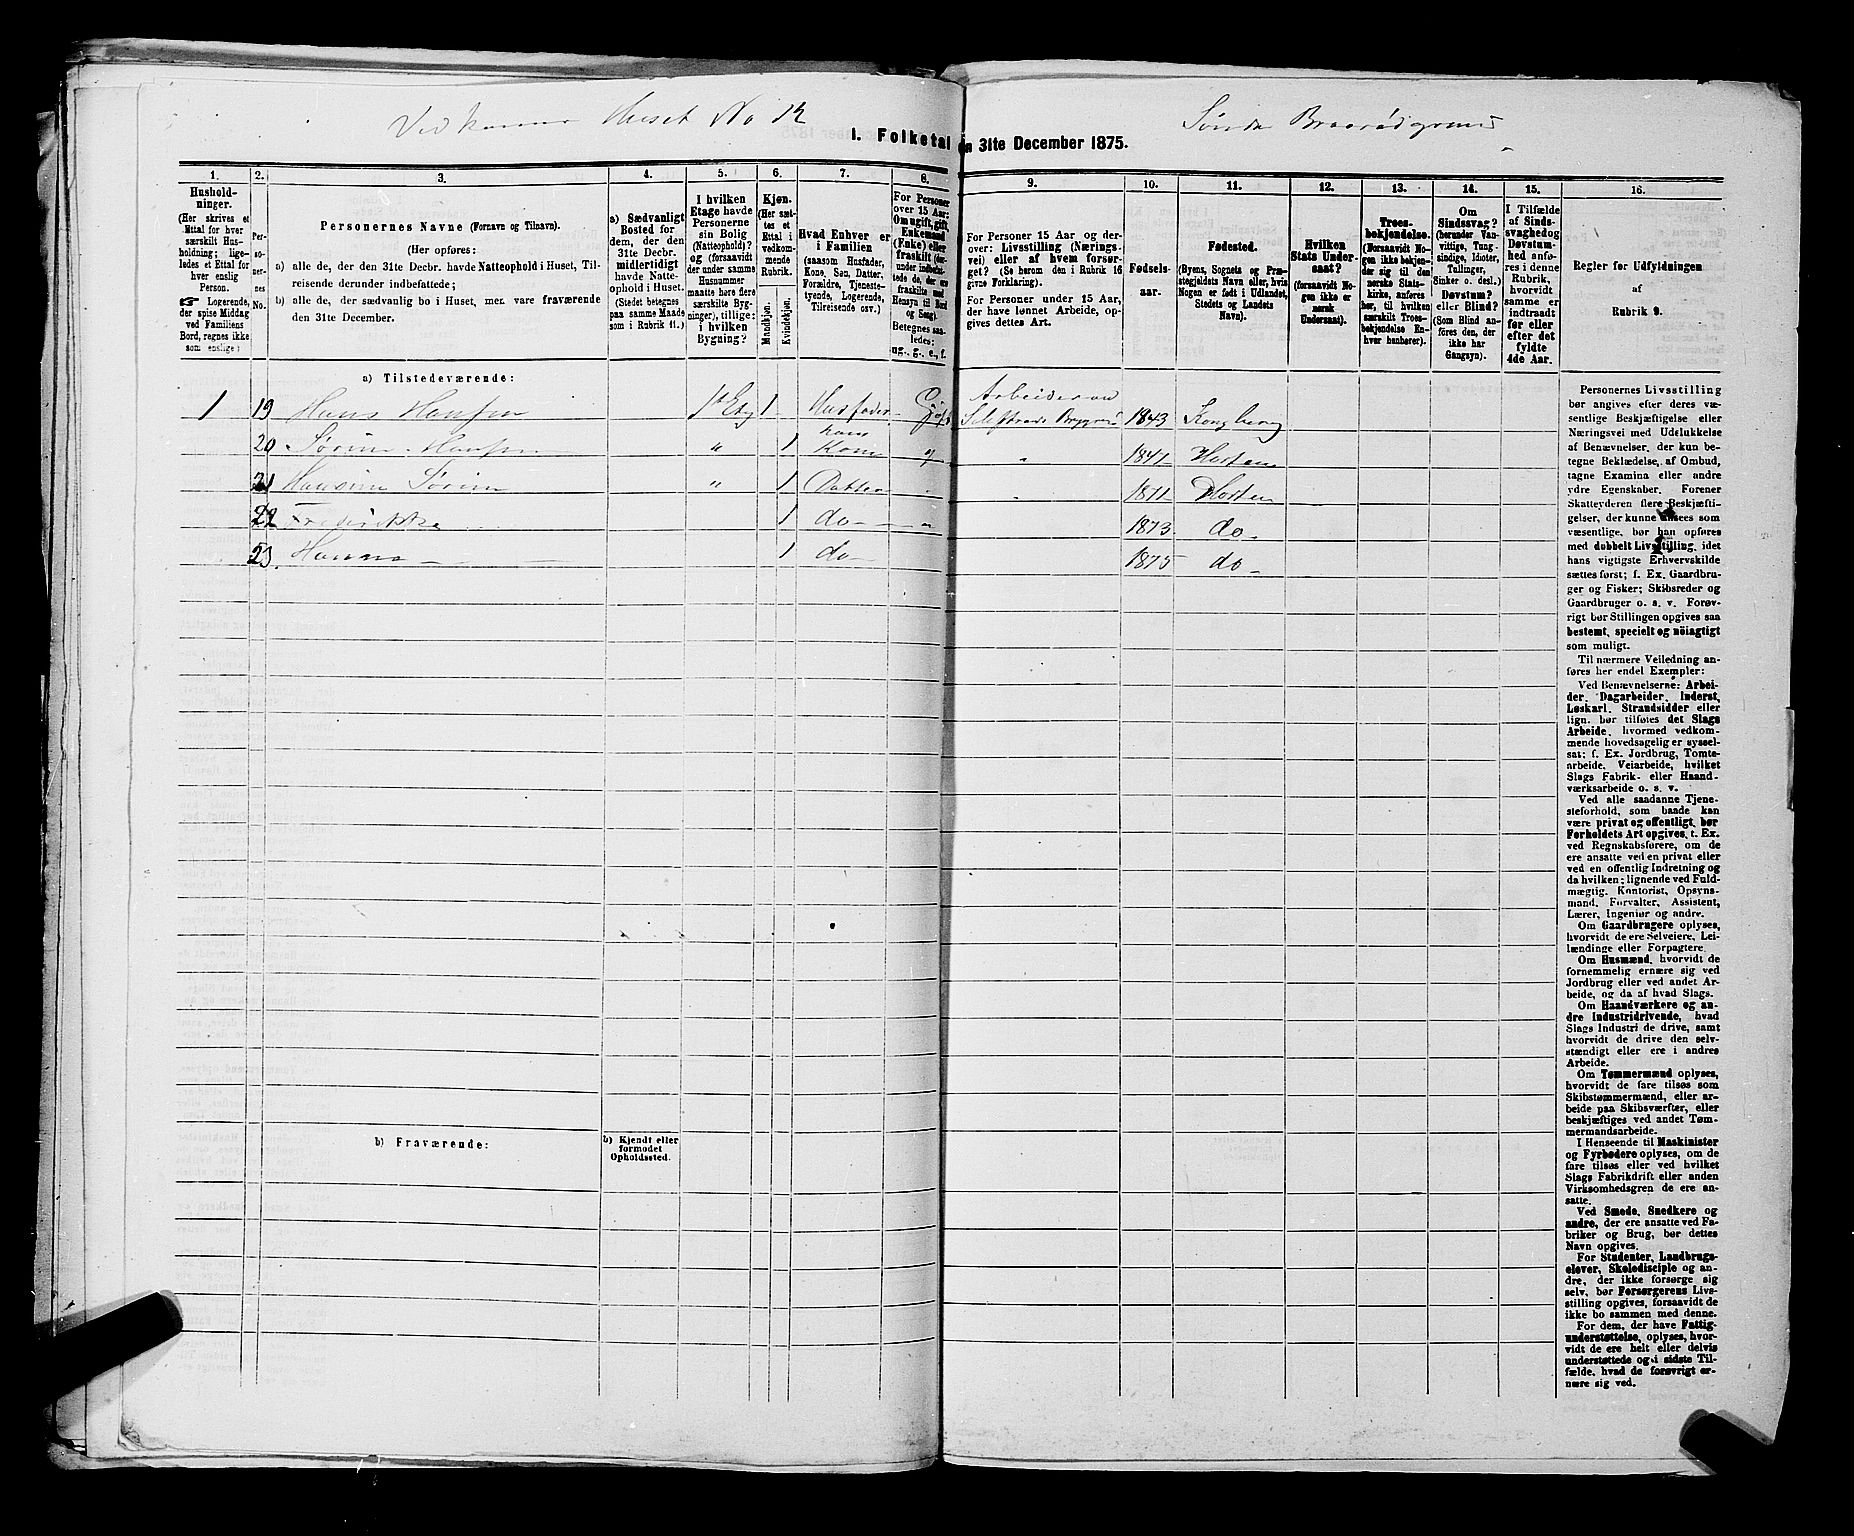 Vedkommer Huset No 12
Søndre
I. Folketal
n 31te December 1875.
1.
Hushold-
ninger.
(Her skrives et
Ettal for hver
særskilt Hus-
holdning; lige-
ledes et Ettal for
hver enslig
Person.
☛ Logerende,
der spise Middag
ved Familiens
Bord, regnes ikke
som enslige)
2.
Per-
so-
ner-
nes
No.
3.
Personernes Navne (Fornavn og Tilnavn).
(Her opføres:
a) alle de, der den 31te Decbr. havde Natteophold i Huset, Til-
reisende derunder indbefattede;
b) alle de, der sædvanlig bo i Huset, men vare fraværende
den 31te December.
4.
a) Sædvanligt
Bosted for
dem, der den
31te Decbr.
midlertidigt
havde Natte-
ophold i Huset.
(Stedet betegnes
paa samme Maade
som i Rubrik 11.)
5.
I hvilken
Etage havde
Personerne
sin Bolig
(Natteophold)?
og (forsaavidt
der under samme
Husnummer
maatte høre flere
særskilte Byg-
ninger), tillige:
i hvilken
Bygning?
6.
Kjøn.
(Her sæt-
tes et
Ettal i
vedkom-
mende
Rubrik.
Mandkjøn.
Kvindekjøn.
7.
Hvad Enhver er
i Familien
(saasom Husfader,
Kone, Søn, Datter,
Forældre, Tjeneste-
tyende, Logerende,
Tilreisende osv.)
8.
For Personer
over 15 Aar:
Om ugift, gift,
Enkemand
(Enke) eller
fraskilt
Betegnes saa-
ledes:
ug., g., e., f.
9.
For Personer 15 Aar og der-
over: Livsstilling (Nærings-
vei) eller af hvem forsør-
get? (Se herom den i Rubrik 16
givne Forklaring).
For Personer under 15 Aar,
der have lønnet Arbeide, op-
gives dettes Art.
10.
Fødsels-
aar.
11.
Fødested.
(Byens, Sognets og Præ-
stegjeldets Navn eller, hvis
Nogen er født i Udlandet,
Stedets og Landets
Navn).
12.
Hvilken
Stats Under-
saat?
(forsaavidt No-
gen ikke er
norsk
Undersaat).
13.
Troes-
bekjendelse.
(Forsaavidt No-
gen ikke bekjen-
der sig til den
norske Stats-
kirke, anføres
her, til hvilken
særskilt Troes-
bekjendelse En-
hver henhører).
14.
Om
Sindssvag?
(herunder Van-
vittige, Tung-
sindige, Idioter,
Tullinger,
Sinker o. desl.)
Døvstum?
eller Blind?
(Som Blind an-
føres den, der
ikke har
Gangsyn).
15.
I Tilfælde
af Sinds-
svaghed og
Døvstum-
hed anfø-
res i denne
Rubrik,
hvorvidt
samme er
indtraadt
før eller
efter det
fyldte
4de Aar.
16.
Regler for Udfyldningen
af
Rubrik 9.
a) Tilstedeværende:
1 19 Hans Hansen 1st Etg 1 Husfader 1843 Kongsberg
20 Sørine Hansen " 1 hans Kone g " 1841 Hurten
21 Hansine Sørine " 1 Datter " 1871
22 Fredrikke 1 do " 1873 do
23 Hanna 1 do 1875 do
b) Fraværende:
b) Kjendt eller
formodet
Opholdssted.
Personernes Livsstilling
bør angives efter deres væ-
sentlige Beskjæftigelse eller
Næringsvei med Udelukkelse
af Benævnelser, der kun be-
tegne Beklædelse af Ombud,
tagne Examina eller andre
ydre Egenskaber. Forener
Skatteyderen flere Beskjæfti-
gelser, der kunne ansees som
væsentlige, bør han opføres
med dobbelt Livsstilling, idet
hans vigtigste Erhvervskilde
sættes først; f. Ex. Gaardbru-
ger og Fisker; Skibsreder og
Gaardbruger o. s. v. Forøv-
rigt bør Stillingen opgives saa
bestemt, specielt og nöiagtigt
som muligt.
Til nærmere Veiledning an-
føres her endel Exempler:
Ved Benævnelserne: Arbei-
der, Dagarbeider, Inderst,
Løskarl, Strandsidder eller
lign. bør tilføies det Slags
Arbeide, hvormed vedkom-
mende hovedsagelig er syssel-
sat; f. Ex. Jordbrug, Tomte-
arbeide, Veiarbeide, hvilket
Slags Fabrik- eller Haand-
værksarbeide o. s. v.
Ved alle saadanne Tjene-
steforhold, som baade kan
være privat og offentligt, bør
Forholdets Art opgives, t. Ex.
ved Regnskabsførere, om de
ere ansatte ved en privat eller
ved en offentlig Indretning og
da hvilken; lignende ved Fuld-
mægtig, Kontorist, Opsyns-
mand, Forvalter, Assistent,
Lærer, Ingeniør og andre.
Om Gaardbrugere oplyses,
hvorvidt de ere Selveiere, Lei-
lændinge eller Forpagtere.
Om Husmænd, hvorvidt de
fornemmelig ernære sig ved
Jordbrug eller ved andet Ar-
beide, og da af hvad Slags.
Om Haandværkere og an-
dre Industridrivende, hvad
Slags Industri de drive, samt
hvorvidt de drive den selv-
stændigt eller ere i andres
Arbeide.
Om Tømmermænd oplyses,
hvorvidt de fare tilsøs som
Skibstømmermænd, eller ar-
beide paa Skibsværfter, eller
beskjæftiges ved andet Tøm-
mermandsarbeide.
I Henseende til Maskinister
og Fyrbødere oplyses, om de
fare tilsøs eller ved hvilket
Slags Fabrikdrift eller anden
Virksomhedsgren de ere an-
satte.
Ved Smede, Snedkere og
andre, der ere ansatte ved Fa-
briker og Brug, bør dettes
Navn opgives.
For Studenter, Landbrugs-
elever, Skoledisciple og an-
dre, der ikke forsørge sig
selv, bør Forsørgerens Livs-
stilling opgives, forsaavidt de
ikke bo sammen med denne.
For dem, der have Fattig-
understøttelse, oplyses, hvor-
vidt de ere helt eller delvis
understøttede og i sidste Til-
fælde, hvad de forøvrigt er-
nære sig ved.